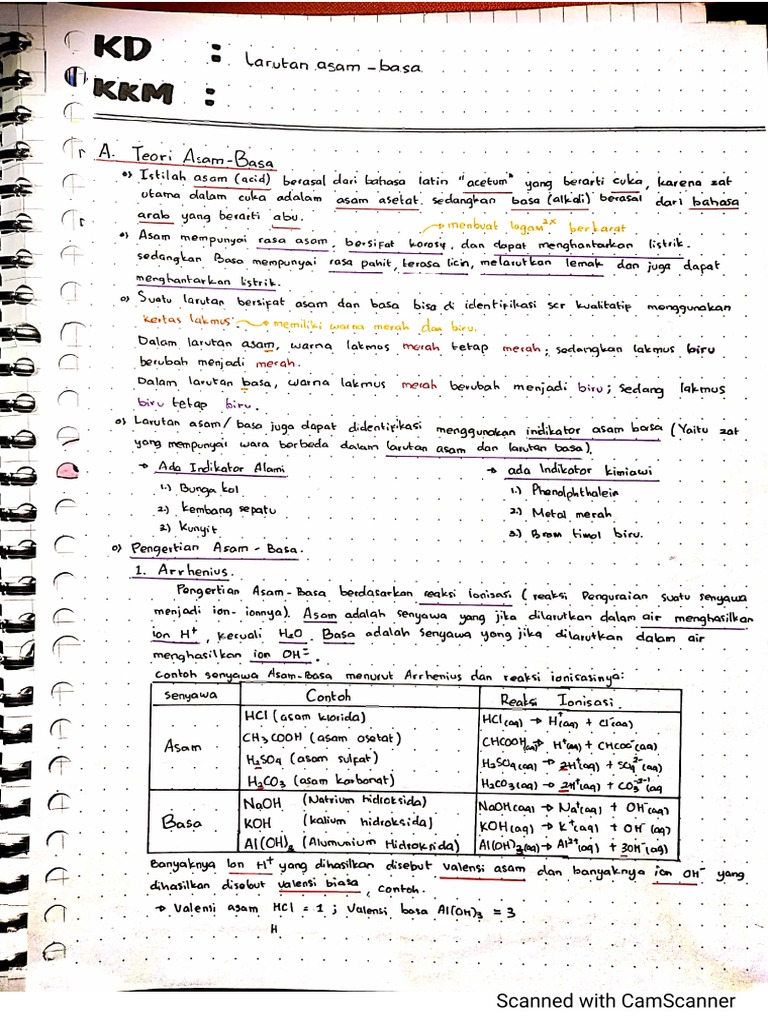 KD : Larutan asam-basa
KKM :
A. Teori Asam-Basa
o) Istilah asam (acid) berasal dari bahasa latin "acetum" yang berarti cuka, karena zat
utama dalam cuka adalam asam asetat. sedangkan basa (alkali) berasal dari bahasa
arab yang berarti abu.
→ membuat logam2x berkarat
o) Asam mempunyai rasa asam, bersifat korosif, dan dapat menghantarkan listrik.
sedangkan Basa mempunyai rasa pahit, terasa licin, melarutkan lemak dan juga dapat
menghantarkan listrik.
o) Suatu larutan bersifat asam dan basa bisa di identifikasi scr kualitatif menggunakan
kertas lakmus. → memiliki warna merah dan biru.
Dalam larutan asam, warna lakmus merah tetap merah; sedangkan lakmus biru
berubah menjadi merah.
Dalam larutan basa, warna lakmus merah berubah menjadi biru; sedang lakmus
biru tetap biru.
o) Larutan asam/basa juga dapat didentifikasi menggunakan indikator asam basa (Yaitu zat
yang mempunyai wara berbeda dalam larutan asam dan larutan basa).
→ Ada Indikator Alami → ada Indikator kimiawi
1.) Bunga kol 1.) Phenolphthalein
2.) Kembang sepatu 2.) Metal merah
2) Kunyit 3.) Brom timol biru.
o) Pengertian Asam-Basa.
1. Arrhenius.
Pengertian Asam-Basa berdasarkan reaksi ionisasi (reaksi Penguraian suatu senyawa
menjadi ion-ionnya). Asam adalah senyawa yang jika dilarutkan dalam air menghasilkan
ion H⁺, kecuali H₂O. Basa adalah senyawa yang jika dilarutkan dalam air
menghasilkan ion OH⁻.
Contoh senyawa Asam-Basa menurut Arrhenius dan reaksi ionisasinya:
Senyawa Contoh Reaksi Ionisasi
Asam
HCl (asam klorida) HCl(aq) → H⁺(aq) + Cl⁻(aq)
CH₃COOH (asam asetat) CHCOOH(aq) → H⁺(aq) + CHCOO⁻(aq)
H₂SO₄ (asam sulfat) H₂SO₄(aq) → 2H⁺(aq) + SO₄²⁻(aq)
H₂CO₃ (asam karbonat) H₂CO₃(aq) → 2H⁺(aq) + CO₃(aq
Basa
NaOH (Natrium hidroksida) NaOH(aq) → Na⁺(aq) + OH⁻(aq)
KOH (kalium hidroksida) KOH(aq) → K⁺(aq) + OH⁻(aq)
Al(OH)₃ (Alumunium Hidroksida) Al(OH)₃(aq) → Al³⁺(aq) + 3OH⁻(aq)
Banyaknya Ion H⁺ yang dihasilkan disebut valensi asam dan banyaknya ion OH⁻ yang
dihasilkan disebut valensi biasa, contoh.
→ Valensi asam HCl = 1 ; Valensi basa Al(OH)₃ = 3
H
Scanned with CamScanner